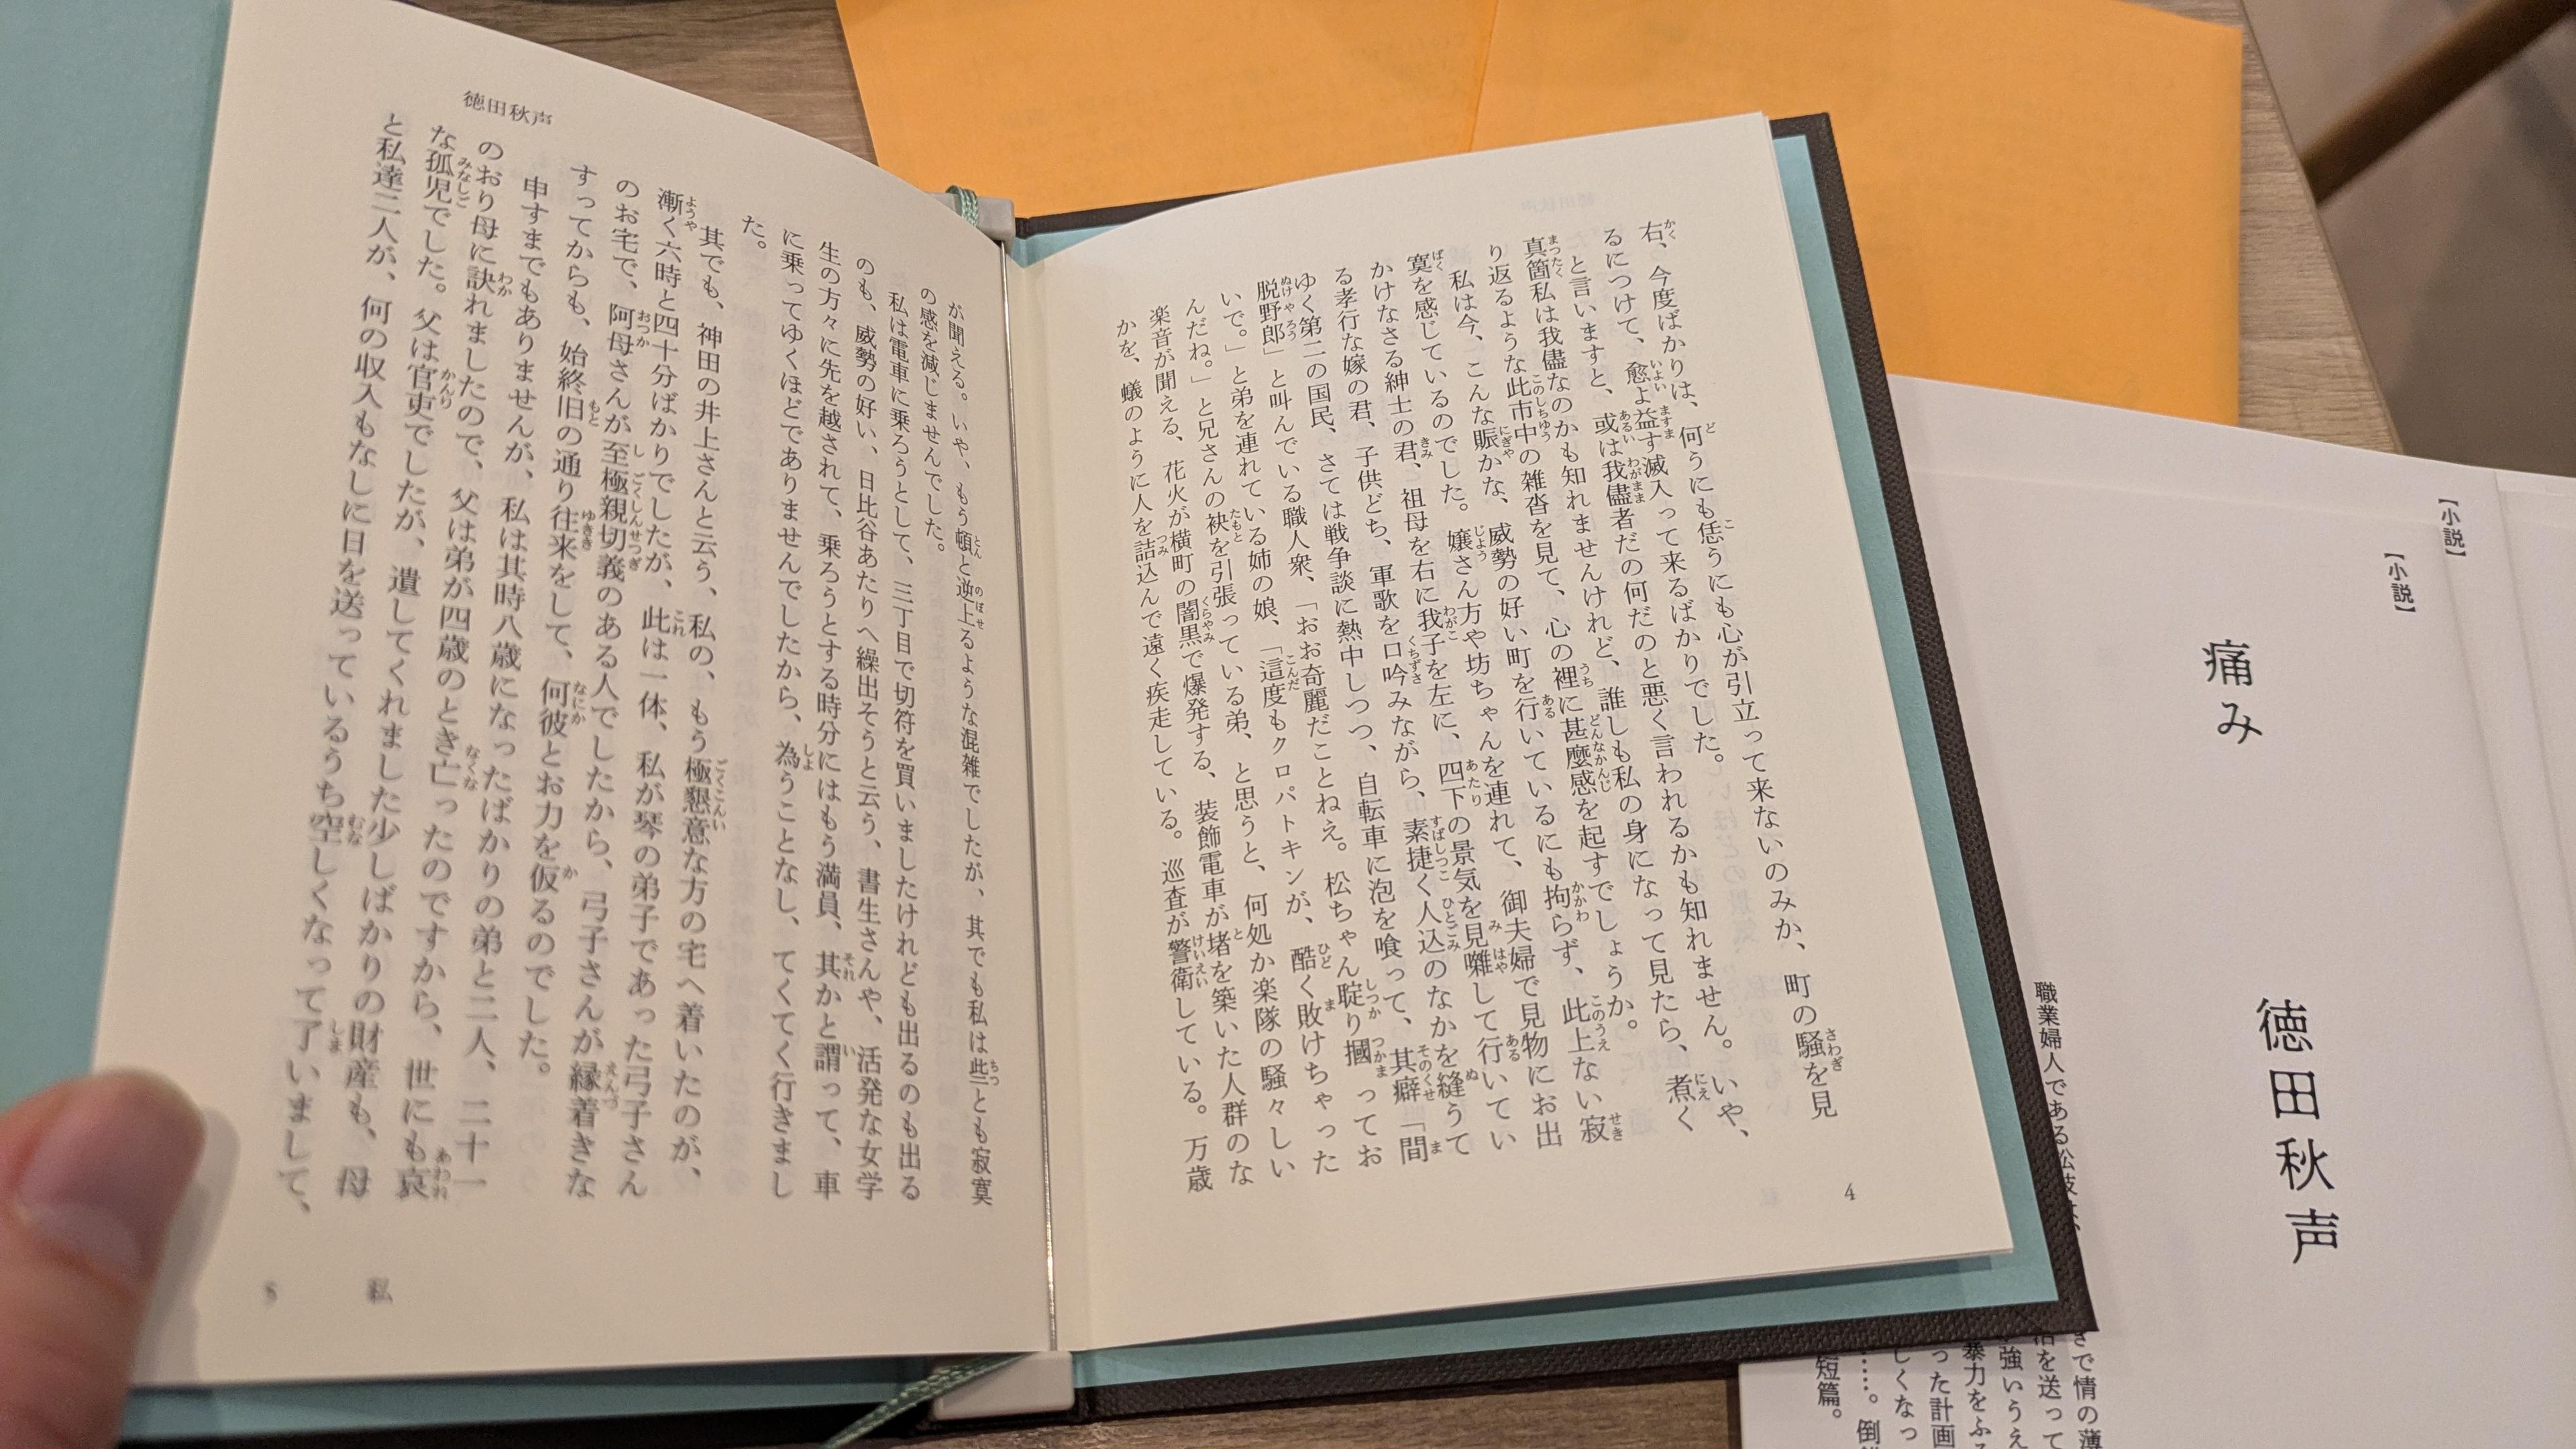 右、今度ばかりは、何うにも恁うにも心が引立って来ないのみか、町の騒を見
るにつけて、愈よ益す滅入って来るばかりでした。
と言いますと、或は我儘者だの何だのと悪く言われるかも知れません。いや、
真箇私は我儘なのかも知れませんけれど、誰しも私の身になって見たら、煮く
り返るような此市中の雑沓を見て、心の裡に甚麼感を起すでしょうか。
私は今、こんな賑かな、威勢の好い町を行いているにも拘らず、此上ない寂
寞を感じているのでした。嬢さん方や坊ちゃんを連れて、御夫婦で見物にお出
かけなさる紳士の君、祖母を右に我子を左に、四下の景気を見囃して行いてい
る孝行な嫁の君、子供どち、軍歌を口吟みながら、素捷く人込のなかを縫うて
ゆく第二の国民、さては戦争談に熱中しつつ、自転車に泡を喰って、其癖「間
脱野郎」と叫んでいる職人衆、「おお奇麗だことねえ。松ちゃん聢り摑ってお
いで。」と弟を連れている姉の娘、「這度もクロパトキンが、酷く敗けちゃった
んだね。」と兄さんの袂を引張っている弟、と思うと、何処か楽隊の騒々しい
楽音が聞える、花火が横町の闇黒で爆発する、装飾電車が堵を築いた人群のな
かを、蟻のように人を詰込んで遠く疾走している。巡査が警衛している。万歳
4
徳田秋声
が聞える。いや、もう頓と逆上るような混雑でしたが、其でも私は些とも寂寞
の感を減じませんでした。
私は電車に乗ろうとして、三丁目で切符を買いましたけれども出るのも出る
のも、威勢の好い、日比谷あたりへ繰出そうと云う、書生さんや、活発な女学
生の方々に先を越されて、乗ろうとする時分にはもう満員、其かと謂って、車
に乗ってゆくほどでありませんでしたから、為うことなし、てくてく行きまし
た。
其でも、神田の井上さんと云う、私の、もう極懇意な方の宅へ着いたのが、
漸く六時と四十分ばかりでしたが、此は一体、私が琴の弟子であった弓子さん
のお宅で、阿母さんが至極親切義のある人でしたから、弓子さんが縁着きな
すってからも、始終旧の通り往来をして、何彼とお力を仮るのでした。
申すまでもありませんが、私は其時八歳になったばかりの弟と二人、二十一
のおり母に訣れましたので、父は弟が四歳のとき亡ったのですから、世にも哀
な孤児でした。父は官吏でしたが、遺してくれました少しばかりの財産も、母
と私達二人が、何の収入もなしに日を送っているうち空しくなって了いまして、
私
5
【小説】
【小説】
痛み
徳田秋声
職業婦人である
短篇。